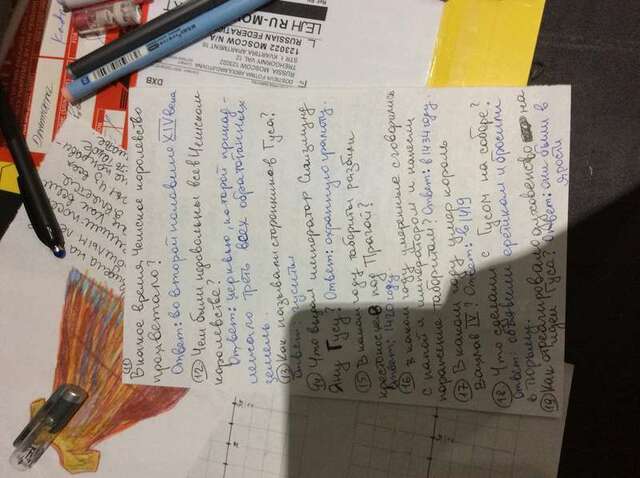 11
В какое время Чешское королевство
процветало?
Ответ: во второй половине XIV века
12 Чем были недовольны все в Чешском
королевстве?
Ответ: церквью, которой принад-
лежало треть всех обработанных
земель
13 Как называли сторонников Гуса?
Ответ: гуситы
14 Что выдал император Сигизмунд
Яну Гусу? Ответ: охранную грамоту.
15 В каком году табориты разбили
крестоносцев под Прагой?
Ответ: 1420 году
16 В каком году умеренные сговорились
с папой и императором и нанесли
поражение таборитам? Ответ: в 1434 году.
17 В каком году умер король
Вацлав IV? Ответ: в 1419
18 Что сделали с Гусом на соборе?
Ответ: объявили еретиком и бросили
в тюрьму.
19 Как отреагировало духовенство на
идеи Гуса? Ответ: они были в
ярости
DXB
123022 MOSCOW N/A
RUSSIAN FEDERATION